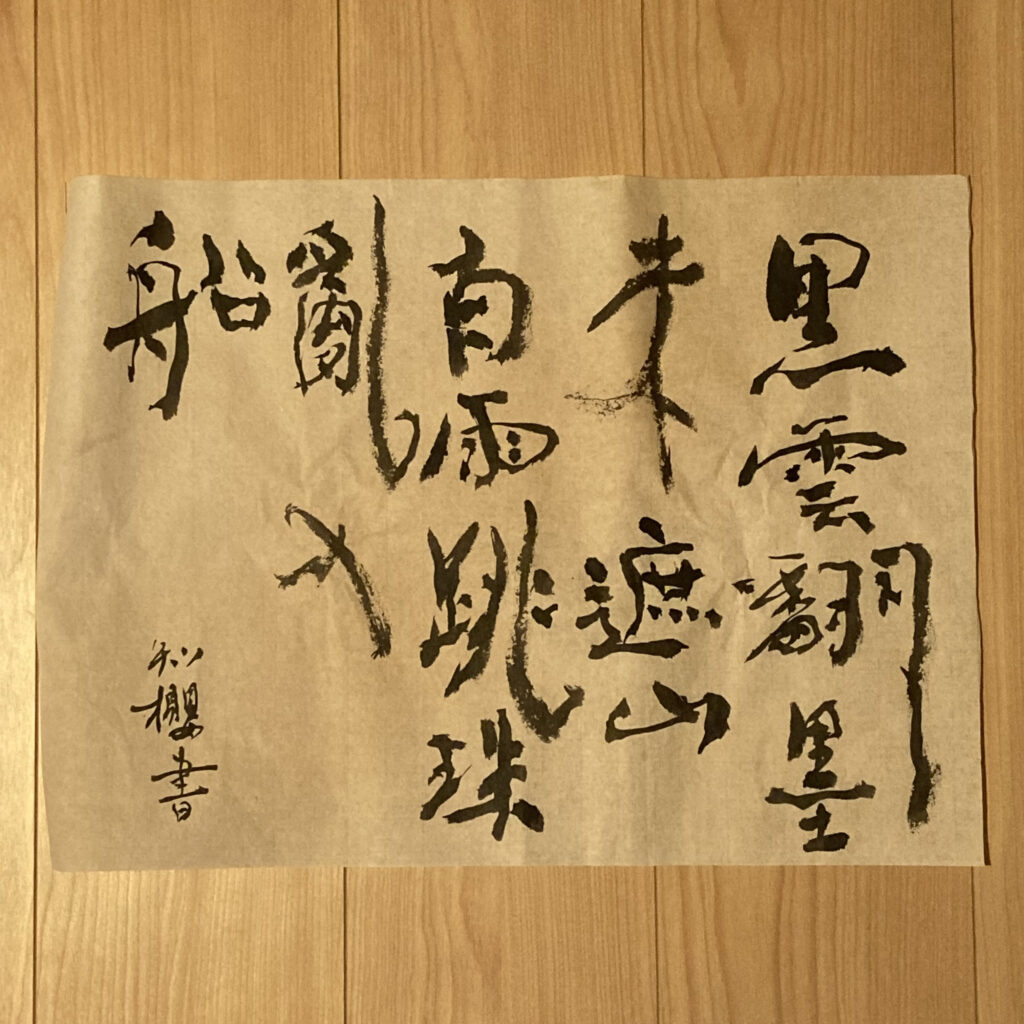 黑雲翻墨
未遮山
白雨跳珠
亂入
船
知櫻書